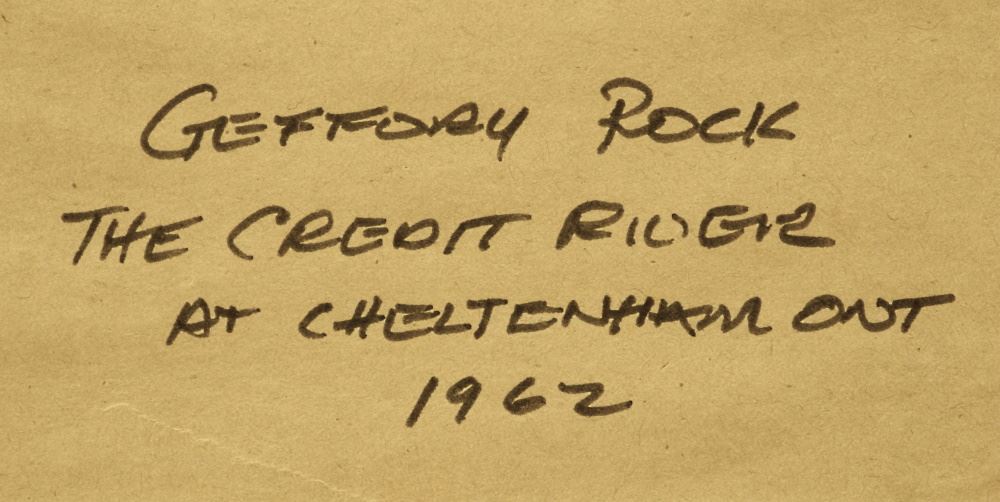 GEFFORY ROCK
THE CREDIT RIVER
AT CHELTENHAM ONT
1962